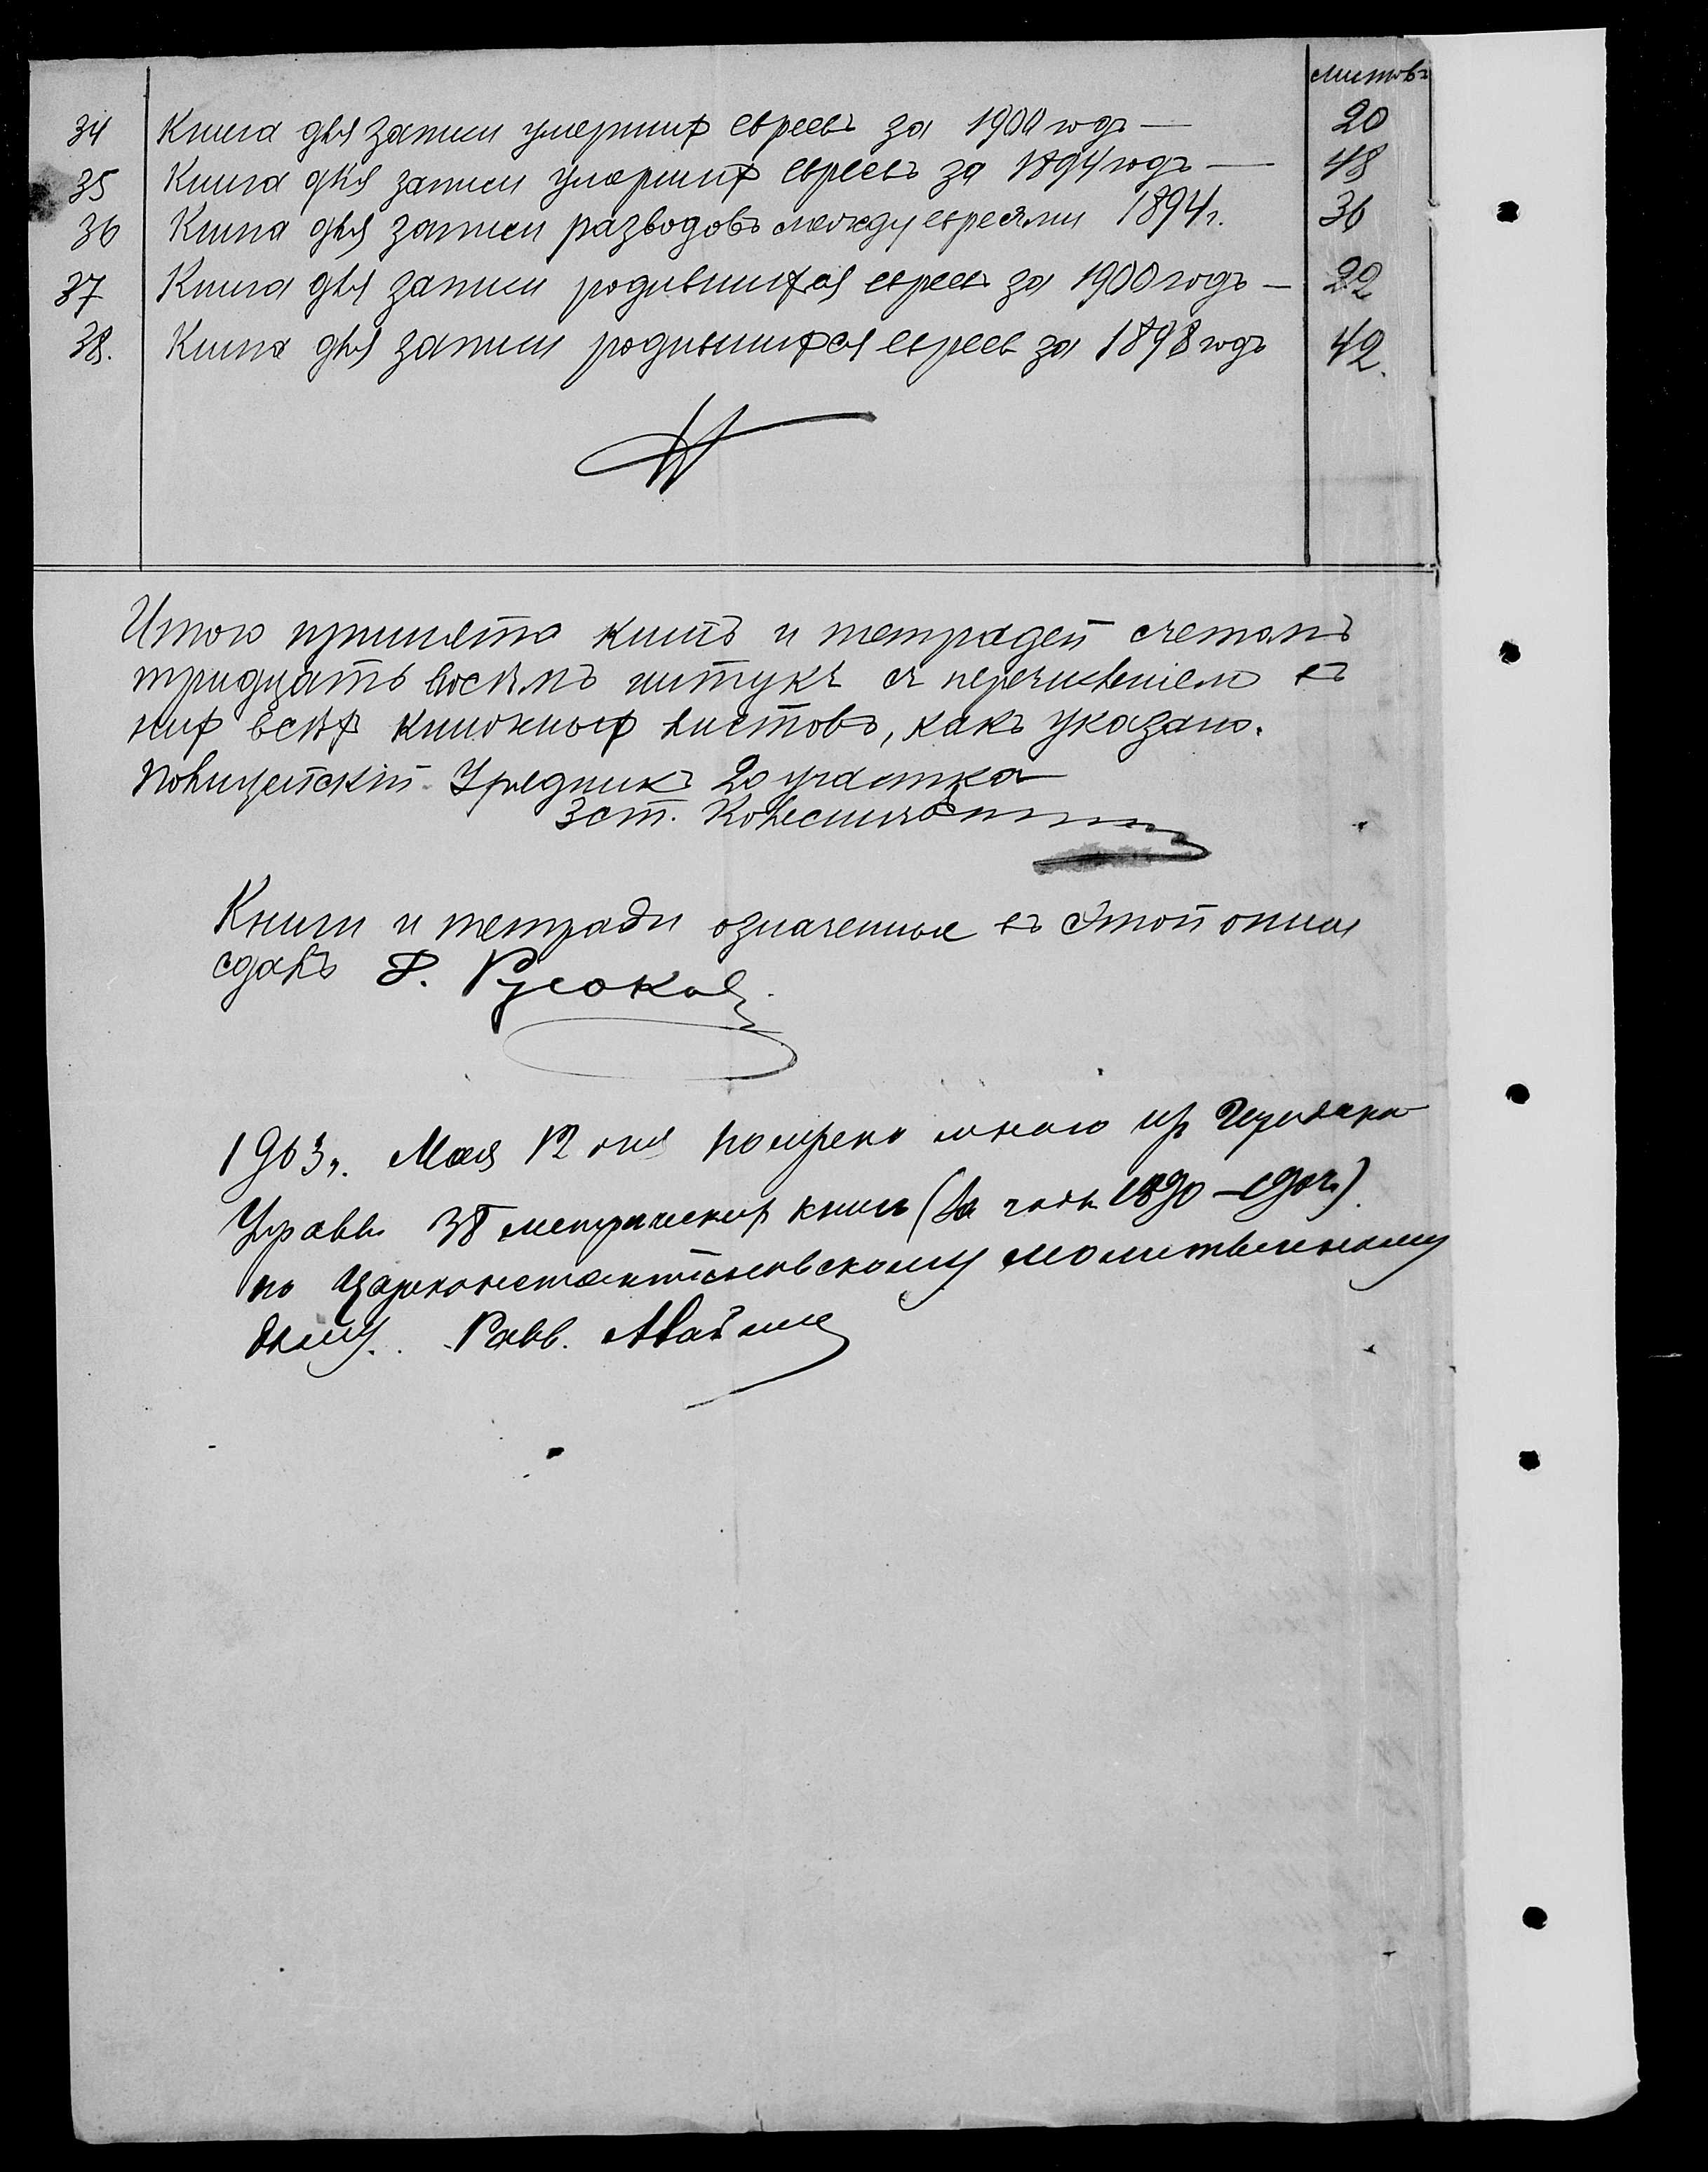 листовъ
34 Книга для записи умершихъ евреевъ за 1900 годъ — 20
35 Книга для записи умершихъ евреевъ за 1894 годъ — 48
36 Книга для записи разводовъ между евреями 1894 г. 36
37 Книга для записи родившихся евреевъ за 1900 годъ — 22
38. Книга для записи родившихся евреевъ за 1898 годъ 42.
Итого принято книгъ и тетрадей счетомъ
тридцать восемъ штукъ съ перечисленіемъ въ
нихъ всѣхъ книжныхъ листовъ, какъ указано.
Полицейскій Урядникъ 2го участка
Книги и тетради означенные въ этой описи
сдалъ Ф. Русаковъ
1903 г. Мая 12 дня получено мною изъ
Управы 38 метрическихъ книгъ (за годы 1890 – 1902)
по Цареконстантиновскому молитвенному
дому. Равв.